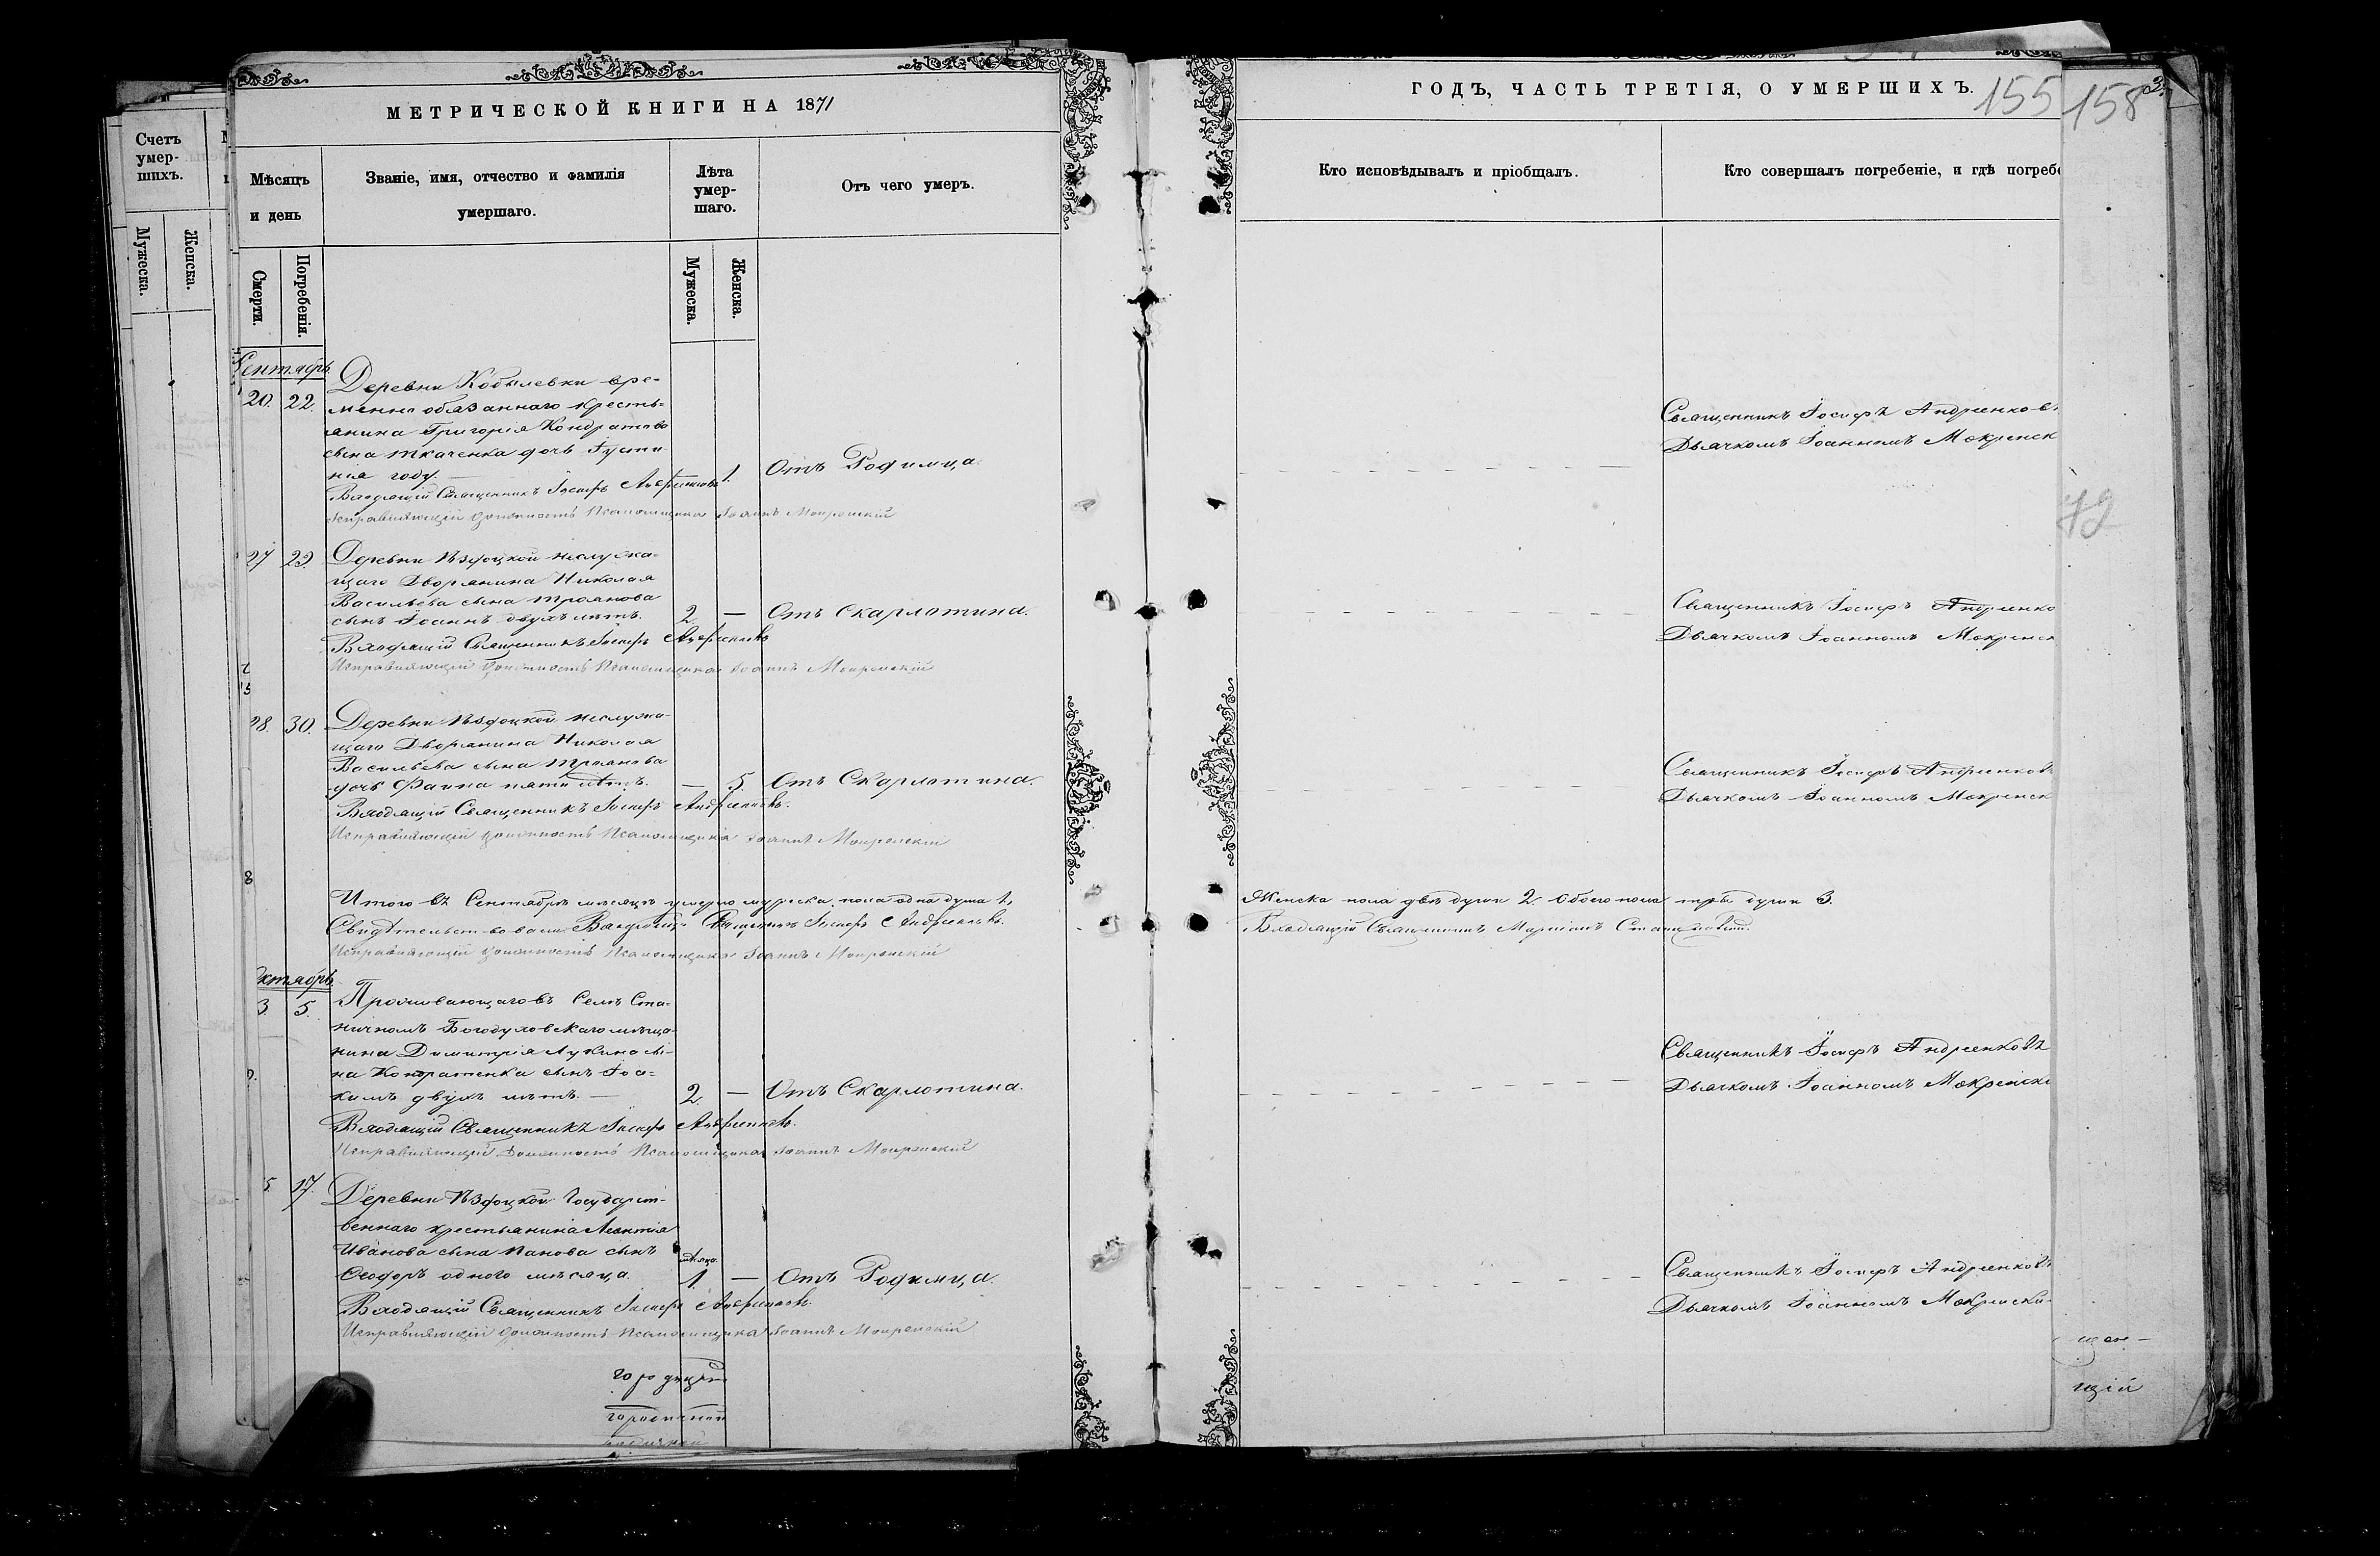 Счетъ
умер-
шихъ.
Мужеска.
Женска.
МЕТРИЧЕСКОЙ КНИГИ НА 1871
Мѣсяцъ
и день
Званіе, имя, отчество и фамилія
умершаго.
Лѣта
умер-
шаго.
Отъ чего умеръ.
Смерти.
Погребенія.
Мужеска.
Женска.
Сентябрь
20. 22.
Деревни Кобылевки вре-
менно обязаннаго кресть-
янина Григорія Кондратова
сына Ткаченка дочь Іусти
нія году. —
1. Отъ Родимца.
Входящій Священникъ Іосифъ Андреенковъ
Исправляющій должность Псаломщика Іоаннъ Мокренскій
27 29.
Деревни неслужа-
щаго Дворянина Николая
Васильева сына Троянова
сынъ Іоаннъ двухъ лѣтъ.
2. — Отъ Скарлотина.
Входящій Священникъ Іосифъ Андреенковъ
Исправляющій должность Псаломщика Іоаннъ Мокренскій
28. 30.
Деревни неслужа-
щаго Дворянина Николая
Васильева сына Троянова
дочь Фаина пяти лѣтъ.
— 5. Отъ Скарлотина.
Входящій Священникъ Іосифъ Андреенковъ.
Исправляющій должность Псаломщика Іоаннъ Мокренскій
Итого въ Сентябрѣ мѣсяцѣ умерло мужеска пола одна душа 1,
Свидѣтельствовали: Входящій Священникъ Іосифъ Андреенковъ.
Исправляющій должность Псаломщика Іоаннъ Мокренскій
Октябрь
3. 5.
Проживающаго въ Селѣ Ста-
ничномъ Богодуховскаго мѣща-
нина Димитрія Лукина сы-
на Кондратенка сынъ Іоа-
кимъ двухъ лѣтъ. —
2. — Отъ Скарлотина.
Входящій Священникъ Іосифъ Андреенковъ.
Исправляющій Должность Псаломщика Іоаннъ Мокренскій
5. 17.
Деревни Государст-
веннаго крестьянина Леонтія
Иванова сына Панова сынъ
Ѳеодоръ одного мѣсяца.
мѣсяца.
1. — Отъ Родимца.
Входящій Священникъ Іосифъ Андреенковъ.
Исправляющій должность Псаломщика Іоаннъ Мокренскій
ГОДЪ, ЧАСТЬ ТРЕТІЯ, О УМЕРШИХЪ.
155
158
Кто исповѣдывалъ и пріобщалъ.
Кто совершалъ погребеніе, и гдѣ погребе
Священникъ Іосифъ Андреенковъ
Дьячкомъ Іоанномъ Мокренск
Священникъ Іосифъ Андреенко
Дьячкомъ Іоанномъ Мокренск
Священникъ Іосифъ Андреенковъ
Дьячкомъ Іоанномъ Мокренск
Женска пола двѣ души 2. Обоего пола три души 3.
Входящій Священникъ
Священникъ Іосифъ Андреенковъ
Дьячкомъ Іоанномъ Мокренск
Священникъ Іосифъ Андреенковъ
Дьячкомъ Іоанномъ Мокренски
72
щій